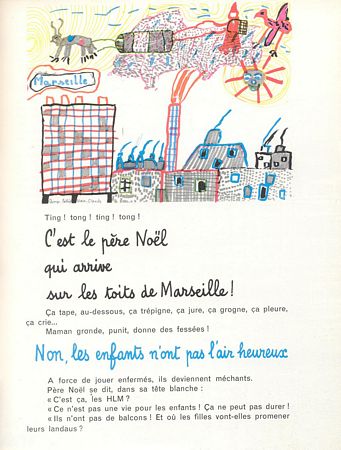 Marseille
Ting ! tong ! ting ! tong !
C'est le père Noël
qui arrive
sur les toits de Marseille !
Ça tape, au-dessous, ça trépigne, ça jure, ça grogne, ça pleure,
ça crie...
Maman gronde, punit, donne des fessées !
Non, les enfants n'ont pas l'air heureux
A force de jouer enfermés, ils deviennent méchants.
Père Noël se dit, dans sa tête blanche :
« C'est ça, les HLM ?
« Ce n'est pas une vie pour les enfants ! Ça ne peut pas durer !
« Ils n'ont pas de balcons ! Et où les filles vont-elles promener
leurs landaus ?